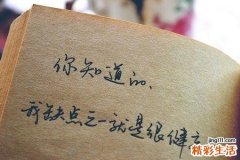 你知道的、
我缺点之一就是很健忘
jing111.com
精彩生活